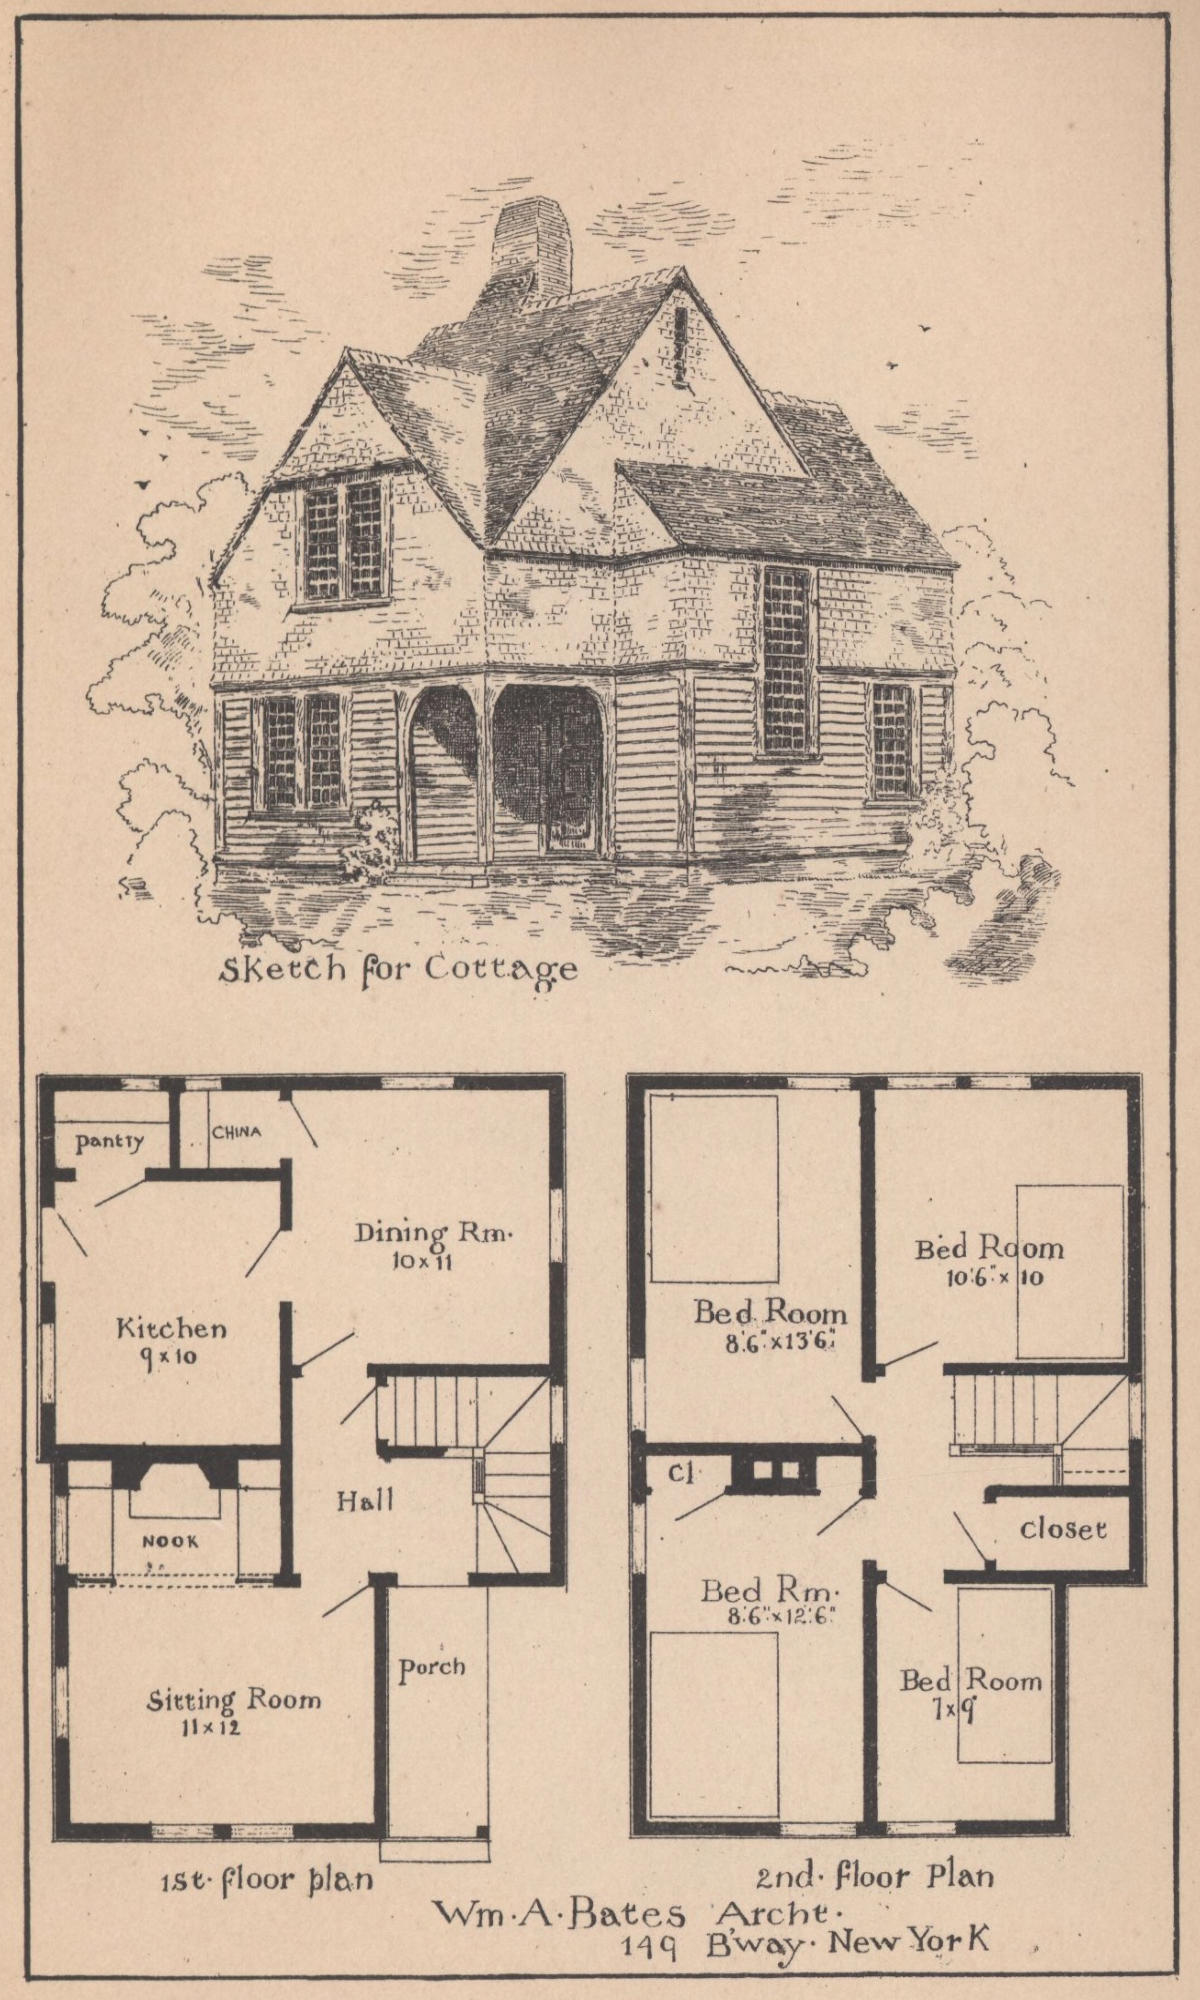 Sketch for Cottage
Pantry
CHINA
Dining Rm.
10 x 11
Kitchen
9 x 10
Hall
NOOK
Porch
Sitting Room
11 x 12
1st. floor plan
Bed Room
10'.6" x 10
Bed Room
8'.6" x 13'6"
Cl.
Closet
Bed Rm.
8'.6" x 12'.6"
Bed Room
7 x 9
2nd. floor Plan
Wm. A. Bates Archt.
149 B'way. New York